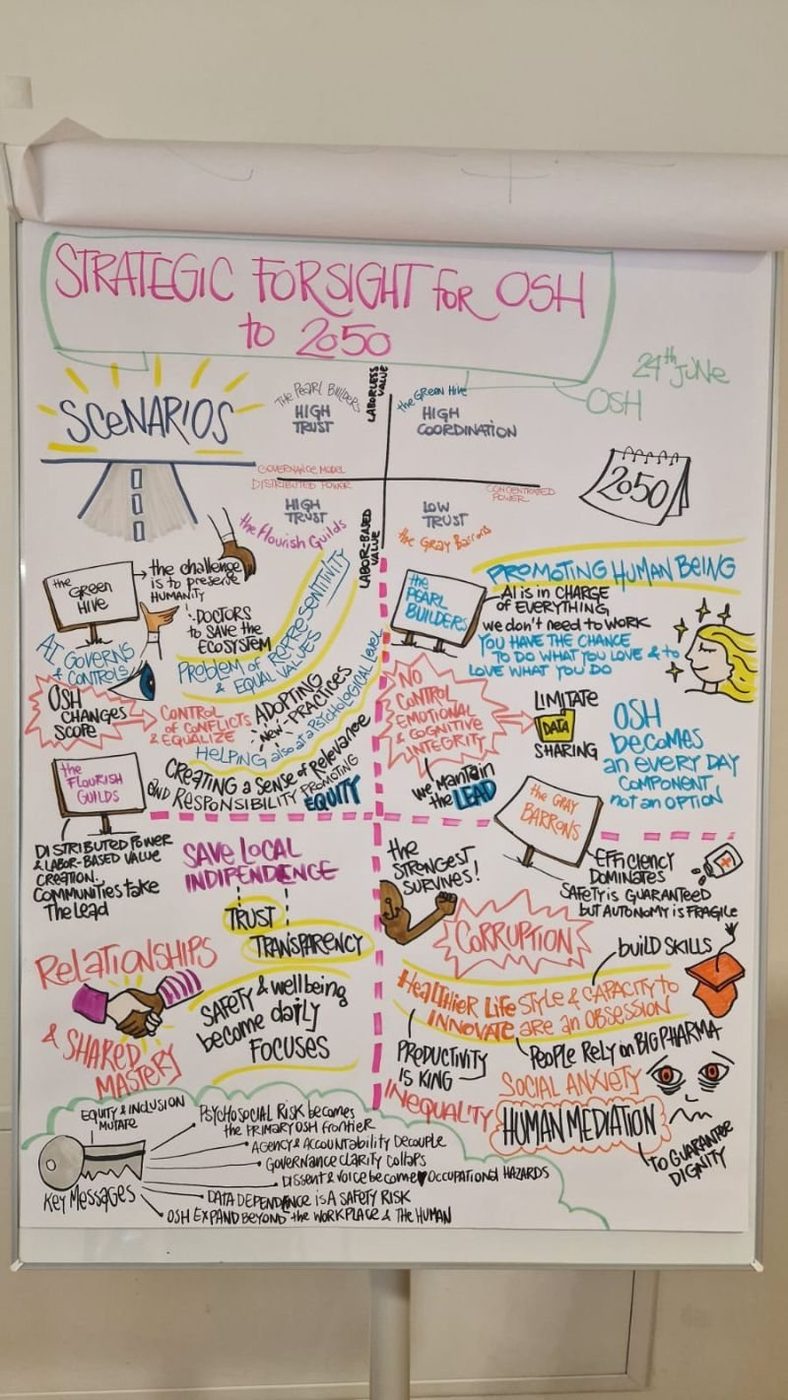 STRATEGIC FORSIGHT FOR OSH
to 2050
24th JUNE
OSH
SCENARIOS
THE PEARL BUILDERS
HIGH
TRUST
LABORLESS
VALUE
the GREEN HIVE
HIGH
COORDINATION
GOVERNANCE MODEL
DISTRIBUTED POWER
CONCENTRATED
POWER
HIGH
TRUST
the Flourish Guilds
LABOR-BASED
VALUE
LOW
TRUST
the Gray Barrons
2050
the
GREEN
HIVE
the challenge
is to preserve
HUMANITY
DOCTORS
to SAVE the
ECOSYSTEM
AI GOVERNS
& CONTROLS
PROBLEM of REPRESENTITIVITY
& EQUAL VALUES
OSH
CHANGES
SCOPE
CONTROL
of CONFLICTS
& EQUALIZE
ADOPTING
NEW PRACTICES
HELPING also at a PSYCHOLOGICAL level
CREATING a Sense of Relevance
AND RESPONSIBILITY PROMOTING
EQUITY
the
PEARL
BUILDERS
PROMOTING HUMAN BEING
AI is in CHARGE
of EVERYTHING
we don't need to WORK
YOU HAVE THE CHANCE
TO DO WHAT YOU LOVE & to
LOVE WHAT YOU DO
NO
CONTROL
EMOTIONAL
& COGNITIVE
INTEGRITY
LIMITATE
DATA
SHARING
we MANTAIN
the LEAD
OSH
becomes
an EVERY DAY
COMPONENT
not an OPTION
the
FLOURISH
GUILDS
DISTRIBUTED POWER
& LABOR-BASED VALUE
CREATION.
COMMUNITIES take
The lead
SAVE LOCAL
INDIPENDENCE
TRUST
TRANSPARENCY
RELATIONSHIPS
& SHARED
MASTERY
SAFETY & wellbeing
become daily
FOCUSES
the GRAY
BARRONS
the
STRONGEST
SURVIVES!
EFFICIENCY
DOMINATES
SAFETY is GUARANTEED
but AUTONOMY is FRAGILE
CORRUPTION
build SKILLS
HEALTHIER LIFE STYLE & CAPACITY to
INNOVATE are an OBSESSION
PRODUCTIVITY
is KING
PEOPLE RELY on BIG PHARMA
SOCIAL ANXIETY
INEQUALITY
HUMAN MEDIATION
TO GUARANTEE
DIGNITY
KEY MESSAGES
EQUITY & INCLUSION
MUTATE
PSYCHOSOCIAL RISK becomes
the PRIMARY OSH FRONTIER
AGENCY & ACCOUNTABILITY DECOUPLE
GOVERNANCE CLARITY COLLAPS
DISSENT & VOICE become OCCUPATIONAL HAZARDS
DATA DEPENDENCE is A SAFETY RISK
OSH EXPAND BEYOND the WORKPLACE & THE HUMAN